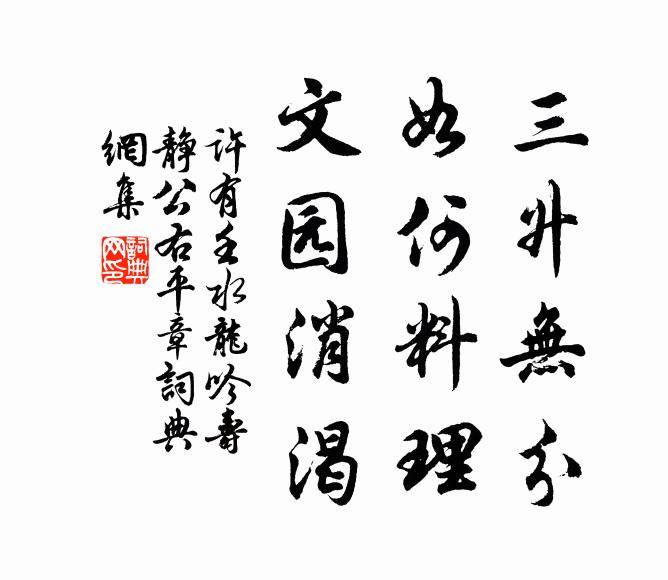 三升無分
如何料理
文园消渴
许有壬水龍吟壽
静公右平章詞典
網集
詞典
网印